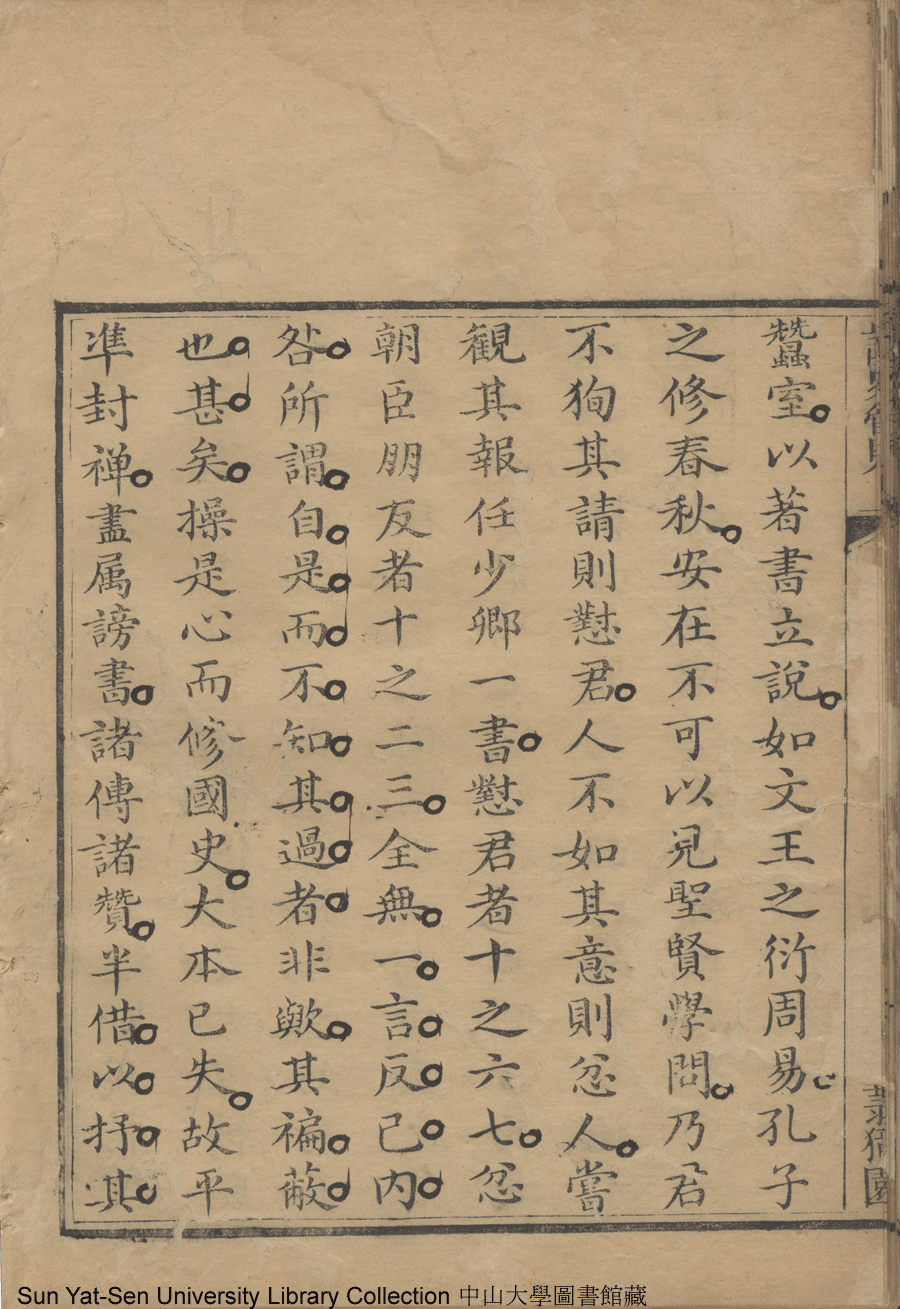 蠶室以著書立說如文王之衍周易孔子
之修春秋安在不可以見聖賢學問乃君
不狥其請則懟君人不如其意則忿人嘗
觀其報任少卿一書懟君者十之六七忿
朝臣朋友者十之二三全無一言反已內
咎所謂自是而不知其過者非歟其褊蔽
也甚矣操是心而修國史大本已失故平
準封禅盡属謗書諸傳諸贊半借以抒其
Sun Yat-Sen University Library Collection 中山大學圖書館藏